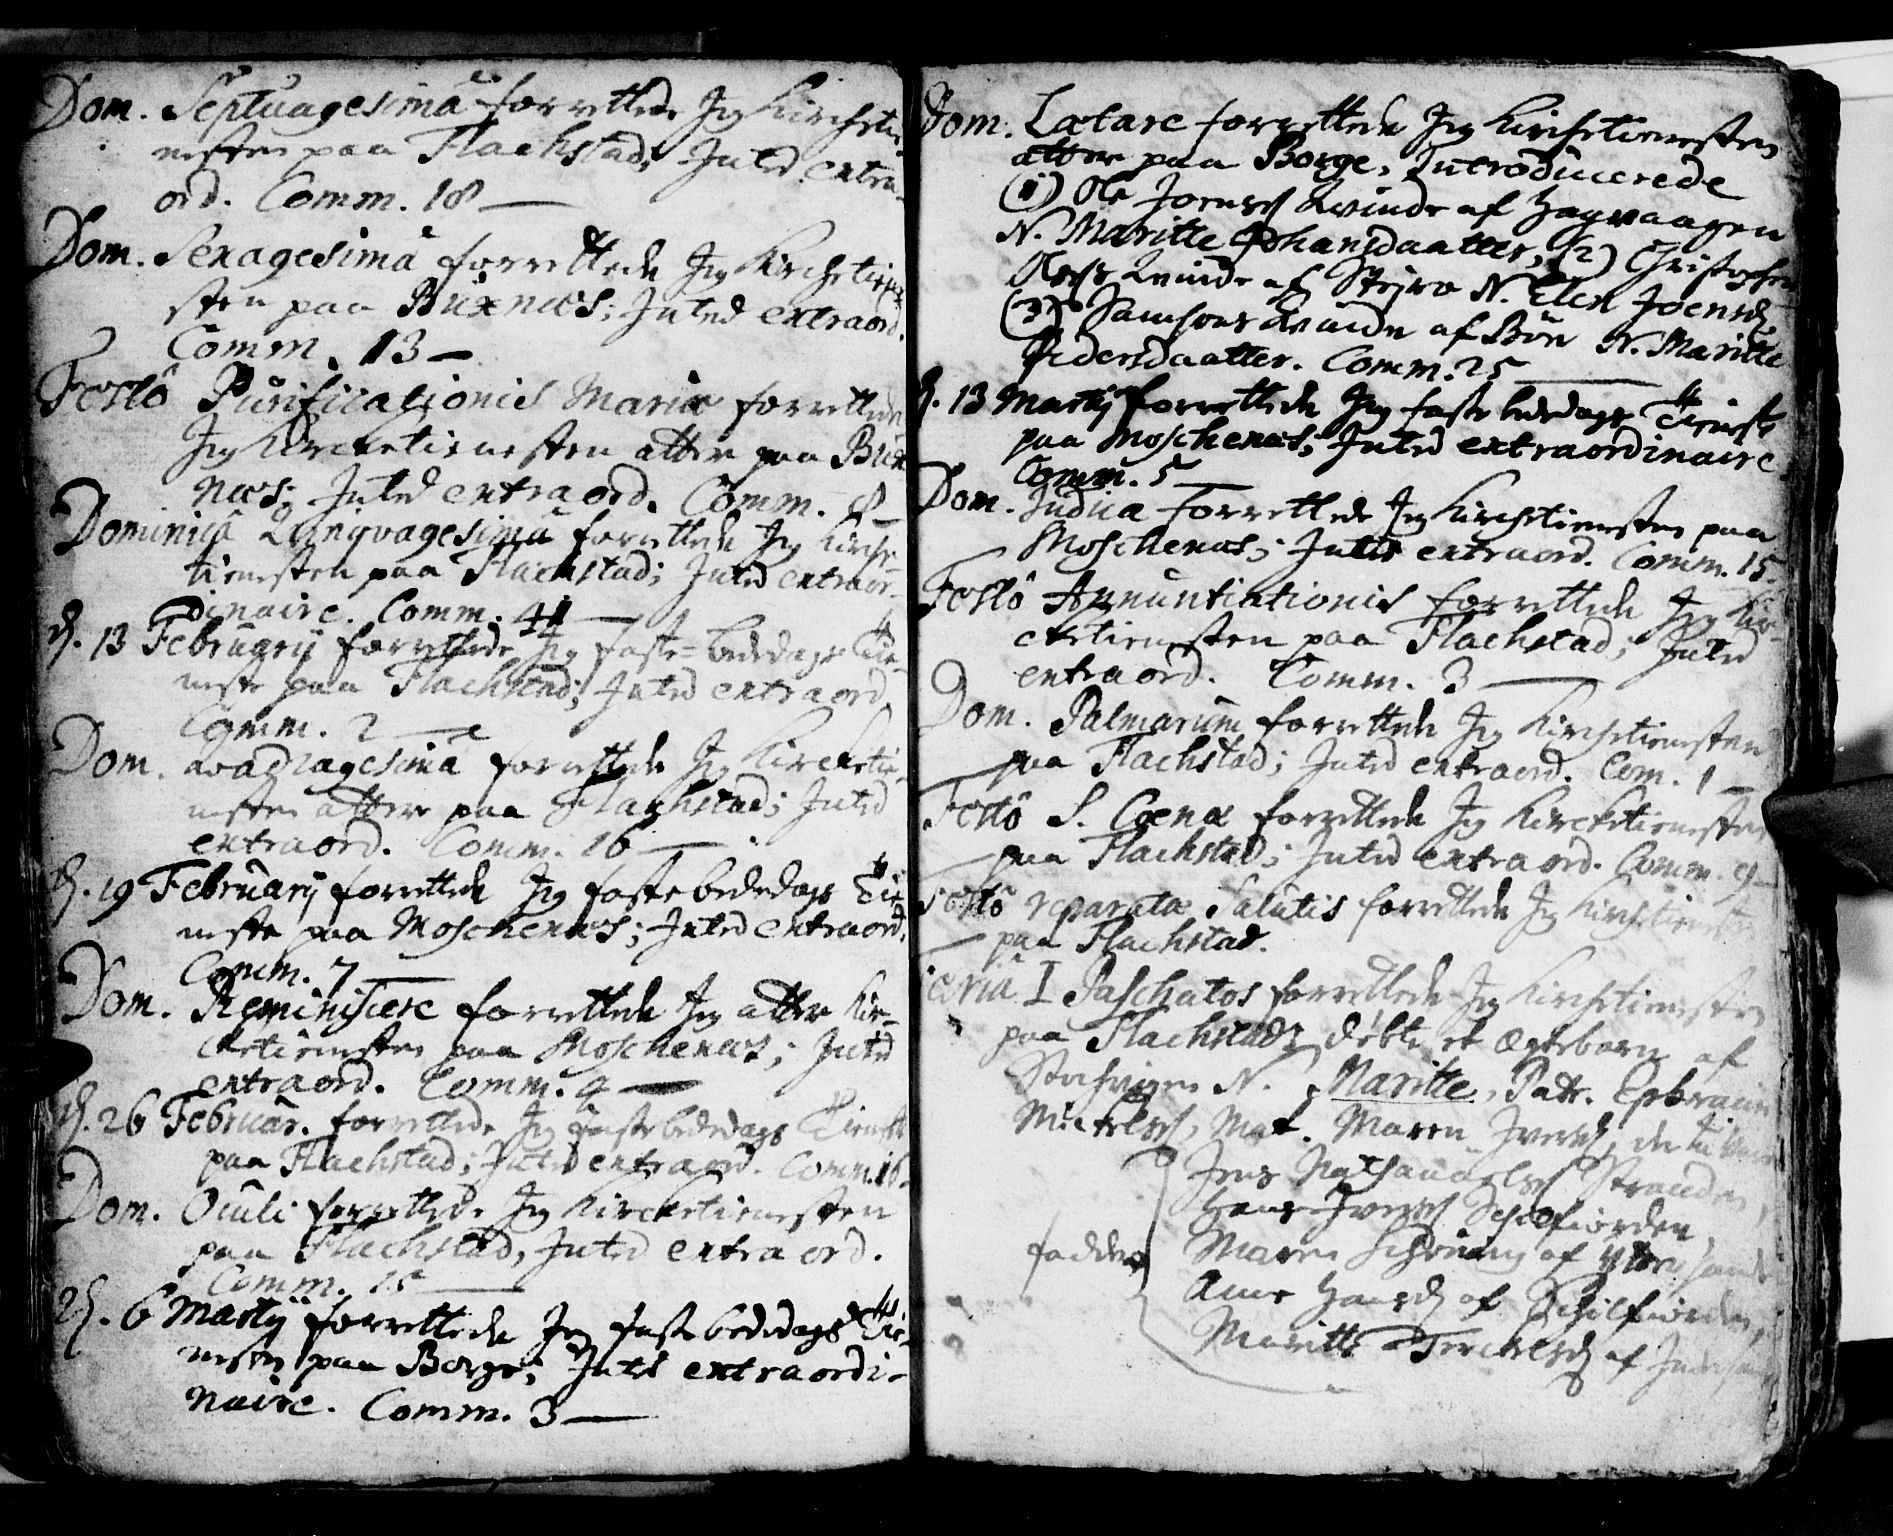 Dom. Septuagesimâ forrettede Jeg Kirchetie-
nesten paa Flachstad; Inted extra-
ord. Comm. 18
Dom. Sexagesimâ forrettede Jeg Kirchetiene-
sten paa Buxnæs; Inted extraord.
Comm. 13
Festô Purificationis Mariæ forrettede
Jeg Kircketienesten atter paa Bux
næs; Inted extraord. Comm. 8
Dominicâ Qvinqvagesimâ forrettede Jeg Kirche-
tienesten paa Flachstad; Inted extraor-
dinaire. Comm. 41
d. 13 Februarij forrettede Jeg faste-bededags Tie-
neste paa Flachstad; Inted extraord.
Comm. 2
Dom. Qvadragesimâ forrettede Jeg Kircketie-
nesten atter paa Flachstad; Inted
extraord. Comm. 16
d. 19 Februarij forrettede Jeg fastebededags Tie-
neste paa Moschenæs; Inted extraord.
Comm. 7
Dom. Reminiscere forrettede Jeg atter Kir-
cketienesten paa Moschenæs; Inted
extraord. Comm. 4
d. 26 Februar. forrettede Jeg fastebededags Tieneste
paa Flachstad; Inted extraord. Comm. 16.
Dom. Oculi forrettede Jeg Kircketienesten
paa Flachstad, Inted extraord.
Comm. 15
d. 6 Martij forrettede Jeg fastebededags Tie-
nesten paa Borge; Inted extraordi-
naire. Comm. 3
Dom. Lætare forrettede Jeg Kirchetienesten
atter paa Borge, Introducerede
(1) Ole Joensøns Kvinde af
N. Maritte Johansdaatter, (2) Christopher
Olsøns Kvinde af N. Elen Joensd.
(3) Samsons Kvinde af N. Maritte
Pedersdaatter. Comm. 25
d. 13 Martij forrettede Jeg fastebededags Tieneste
paa Moschenæs; Inted extraordinaire
Comm. 5
Dom. Judica forrettede Jeg Kirchetienesten paa
Moschenæs; Inted extraord. Comm. 15.
Festô Annuntiationis forrettede Jeg Kir-
cketienesten paa Flachstad; Inted
extraord. Comm. 3
Dom. Palmarum forrettede Jeg Kirchetienesten
paa Flachstad; Inted extraord. Com. 1
Festô S. Coenæ forrettede Jeg Kircketienesten
paa Flachstad; Inted extraord. Comm. 9
Festô reparatæ Salutis forrettede Jeg Kirchetieneste
paa Flachstad.
Feriâ I Paschatos forrettede Jeg Kirchetienesten
paa Flachstad; døbte et ægtebarn af
N. Maritte, Patr. Ephraim
Mickelsøn, Mat. Maren Iversd.
Jens Nathanaelsøn Stranden,
Hans Iversøn Schelfiorden,
faddere Maren Schøning af Yttersand
Ane Hansd. af Schelfiorden,
Maritte Terckelsd. af